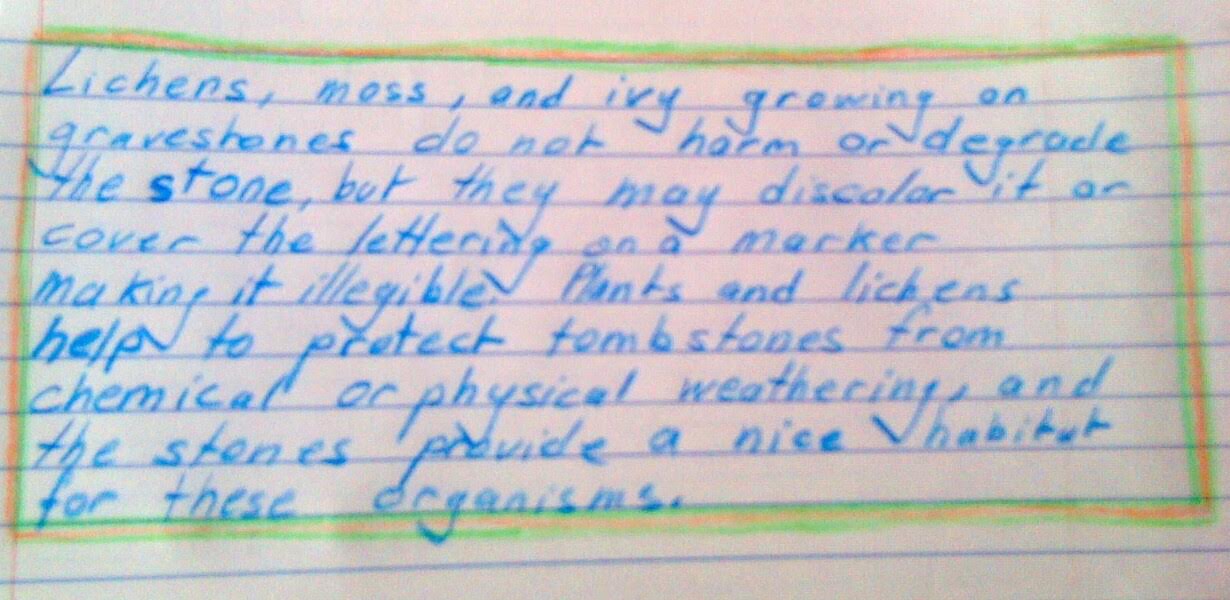 Lichens, moss, and ivy growing on
gravestones do not harm or degrade
the stone, but they may discolor it or
cover the lettering on a marker
making it illegible. Plants and lichens
help to protect tombstones from
chemical or physical weathering, and
the stones provide a nice habitat
for these organisms.